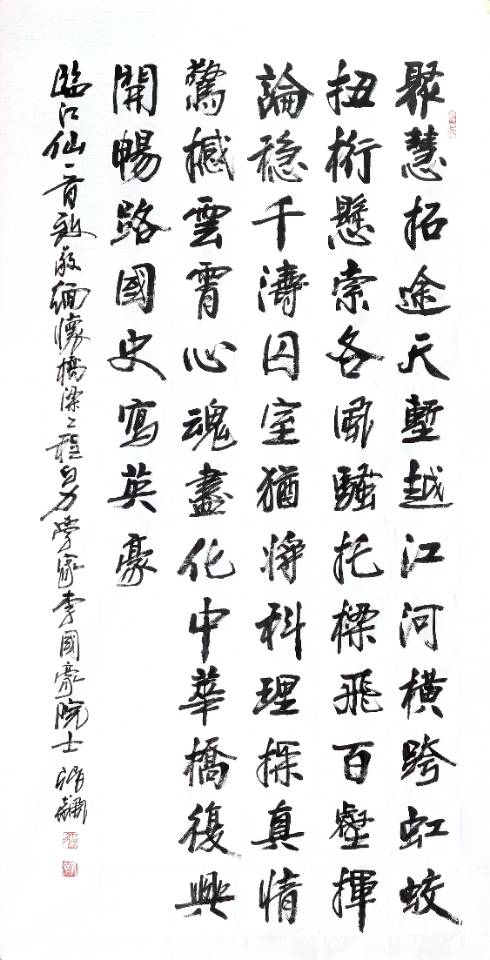 聚慧拓途天塹越江河橫跨虹蛟
扭桁懸索各風騷托樑飛百壑揮
論稳千濤囚室猶將科理探真情
驚撼雲霄心魂盡化中華橋復興
開暢路國史寫英豪
臨江仙一首緬懷橋梁工程与力學家李國豪院士